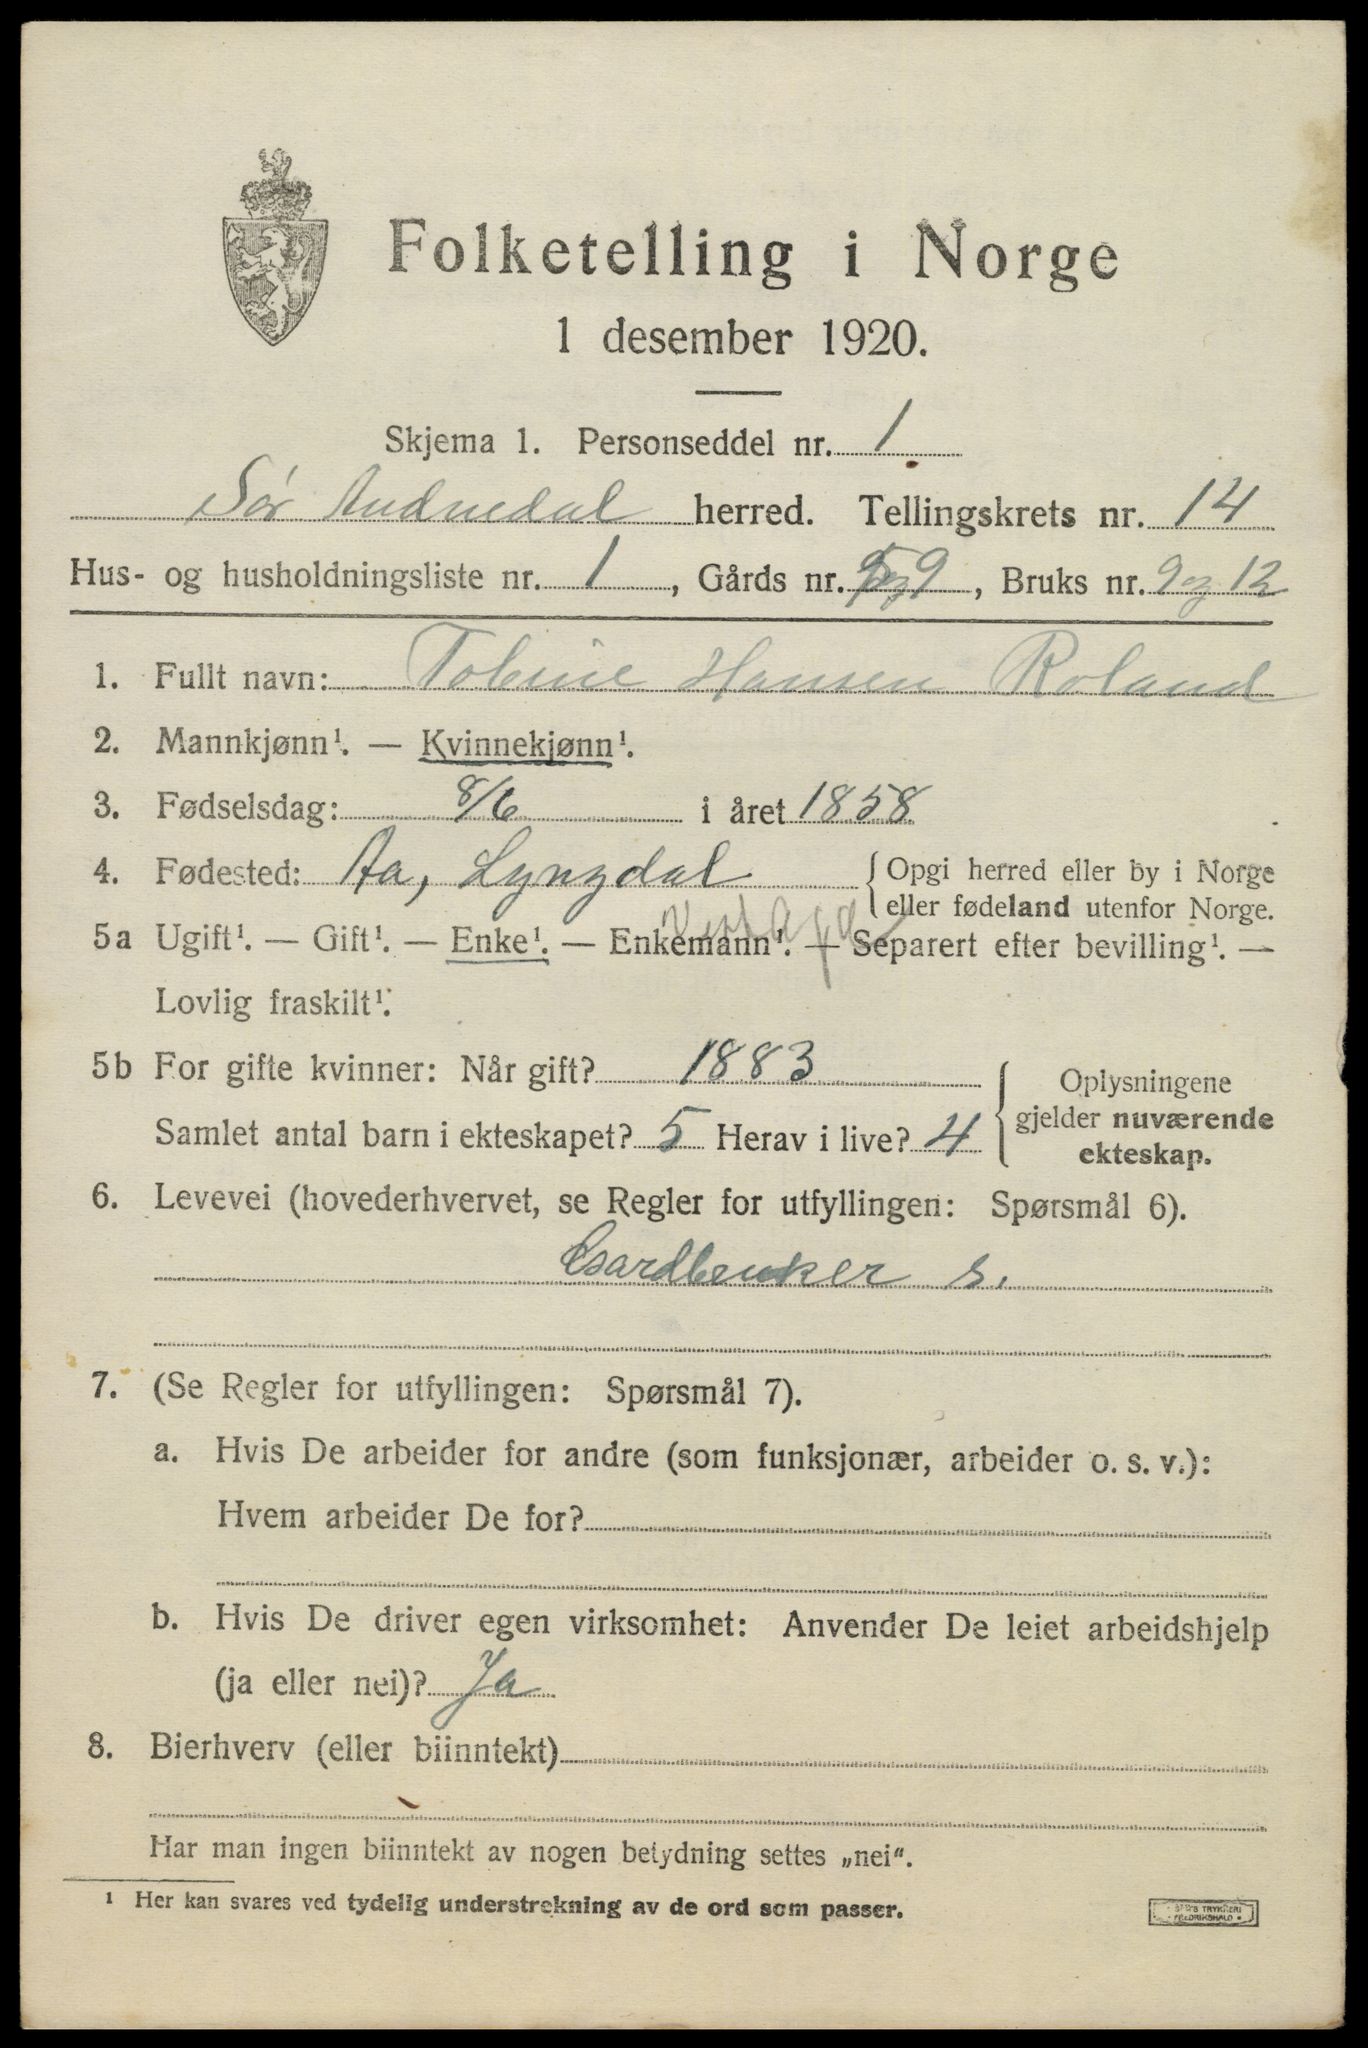 Folketelling i Norge
1 desember 1920.
Skjema 1. Personseddel nr. 1
Sør Audnedal herred. Tellingskrets nr. 14
Hus- og husholdningsliste nr. 1, Gårds nr. 9, Bruks nr. 9 og 12
1. Fullt navn: Tobine Hansen Roland
2. Mannkjønn¹. — Kvinnekjønn¹.
3. Fødselsdag: 8/6 i året 1858
4. Fødested: Aa, Lyngdal {Opgi herred eller by i Norge
eller fødeland utenfor Norge.
5a Ugift¹. — Gift¹. — Enke¹. — Enkemann¹. — Separert efter bevilling¹. —
Lovlig fraskilt¹.
5b For gifte kvinner: Når gift? 1883 {Oplysningene
gjelder nuværende
Samlet antal barn i ekteskapet? 5 Herav i live? 4
ekteskap.
6. Levevei (hovederhvervet, se Regler for utfyllingen: Spørsmål 6).
Gardbruker s.
7. (Se Regler for utfyllingen: Spørsmål 7).
a. Hvis De arbeider for andre (som funksjonær, arbeider o. s. v.):
Hvem arbeider De for?
b. Hvis De driver egen virksomhet: Anvender De leiet arbeidshjelp
(ja eller nei)? Ja
8. Bierhverv (eller biinntekt)
Har man ingen biinntekt av nogen betydning settes „nei“.
¹ Her kan svares ved tydelig understrekning av de ord som passer.
TRYKKERI
FREDRIKSHALD